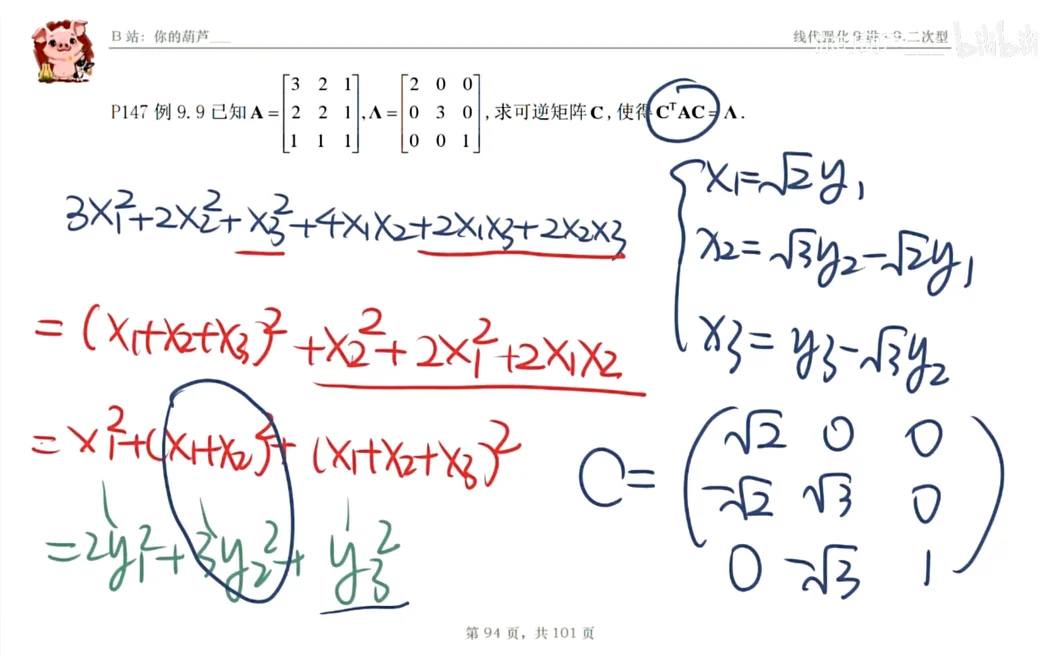 B 站：你的葫芦___
线代强化 9 讲—9.二次型
bilibili
P147 例 9.9 已知 A = [3 2 1; 2 2 1; 1 1 1], Λ = [2 0 0; 0 3 0; 0 0 1], 求可逆矩阵 C, 使得 CᵀAC = Λ.
3x₁²+2x₂²+x₃²+4x₁x₂+2x₁x₃+2x₂x₃
=(x₁+x₂+x₃)²+x₂²+2x₁²+2x₁x₂
=x₁²+(x₁+x₂)²+(x₁+x₂+x₃)²
=2y₁²+3y₂²+y₃²
x₁=√2y₁
x₂=√3y₂-√2y₁
x₃=y₃-√3y₂
C=
√2 0 0
-√2 √3 0
0 -√3 1
第 94 页，共 101 页